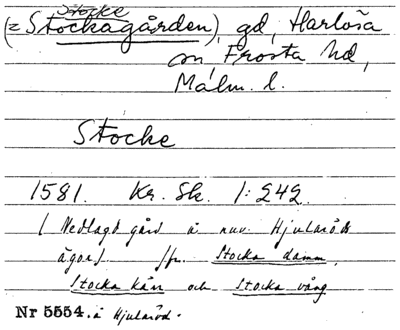 Stocke
(= Stockagården), gd, Harlösa
sn, Frosta hd,
Malm. l.
Stocke
1581. Kr. Sk. 1:242.
( Nedlagd gård å nuv. Hjularöds
ägor). Jfr. Stocka damm,
Stocka kärr och Stocka vång
Nr 5554. å Hjularöd.